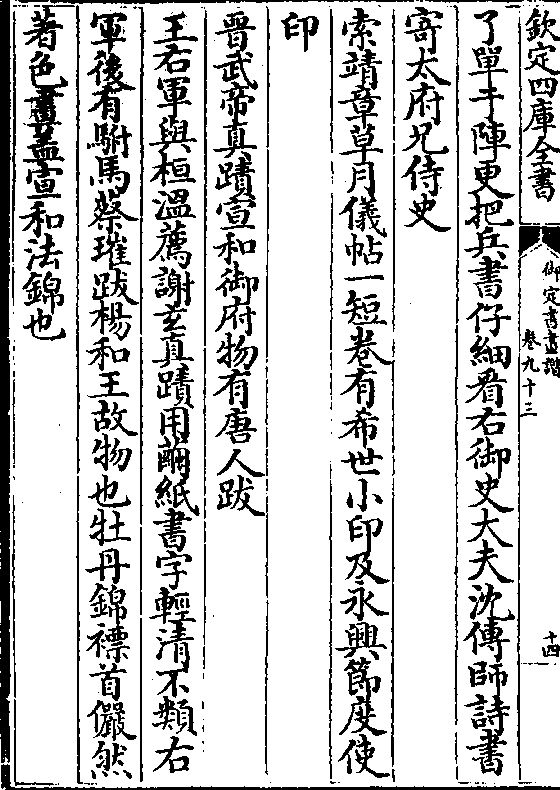 欽定四庫全書
御定書畫譜
卷九十三
十四
了單于陣更把兵書仔細看右御史大夫沈傳師詩書
寄太府兄侍史
索靖章草月儀帖一短卷有希世小印及永興節度使
印
晉武帝真蹟宣和御府物有唐人跋
王右軍與桓溫薦謝玄真蹟用繭紙書字輕清不類右
軍後有駙馬蔡璀跋楊和王故物也牡丹錦褾首儼然
著色畫葢宣和法錦也